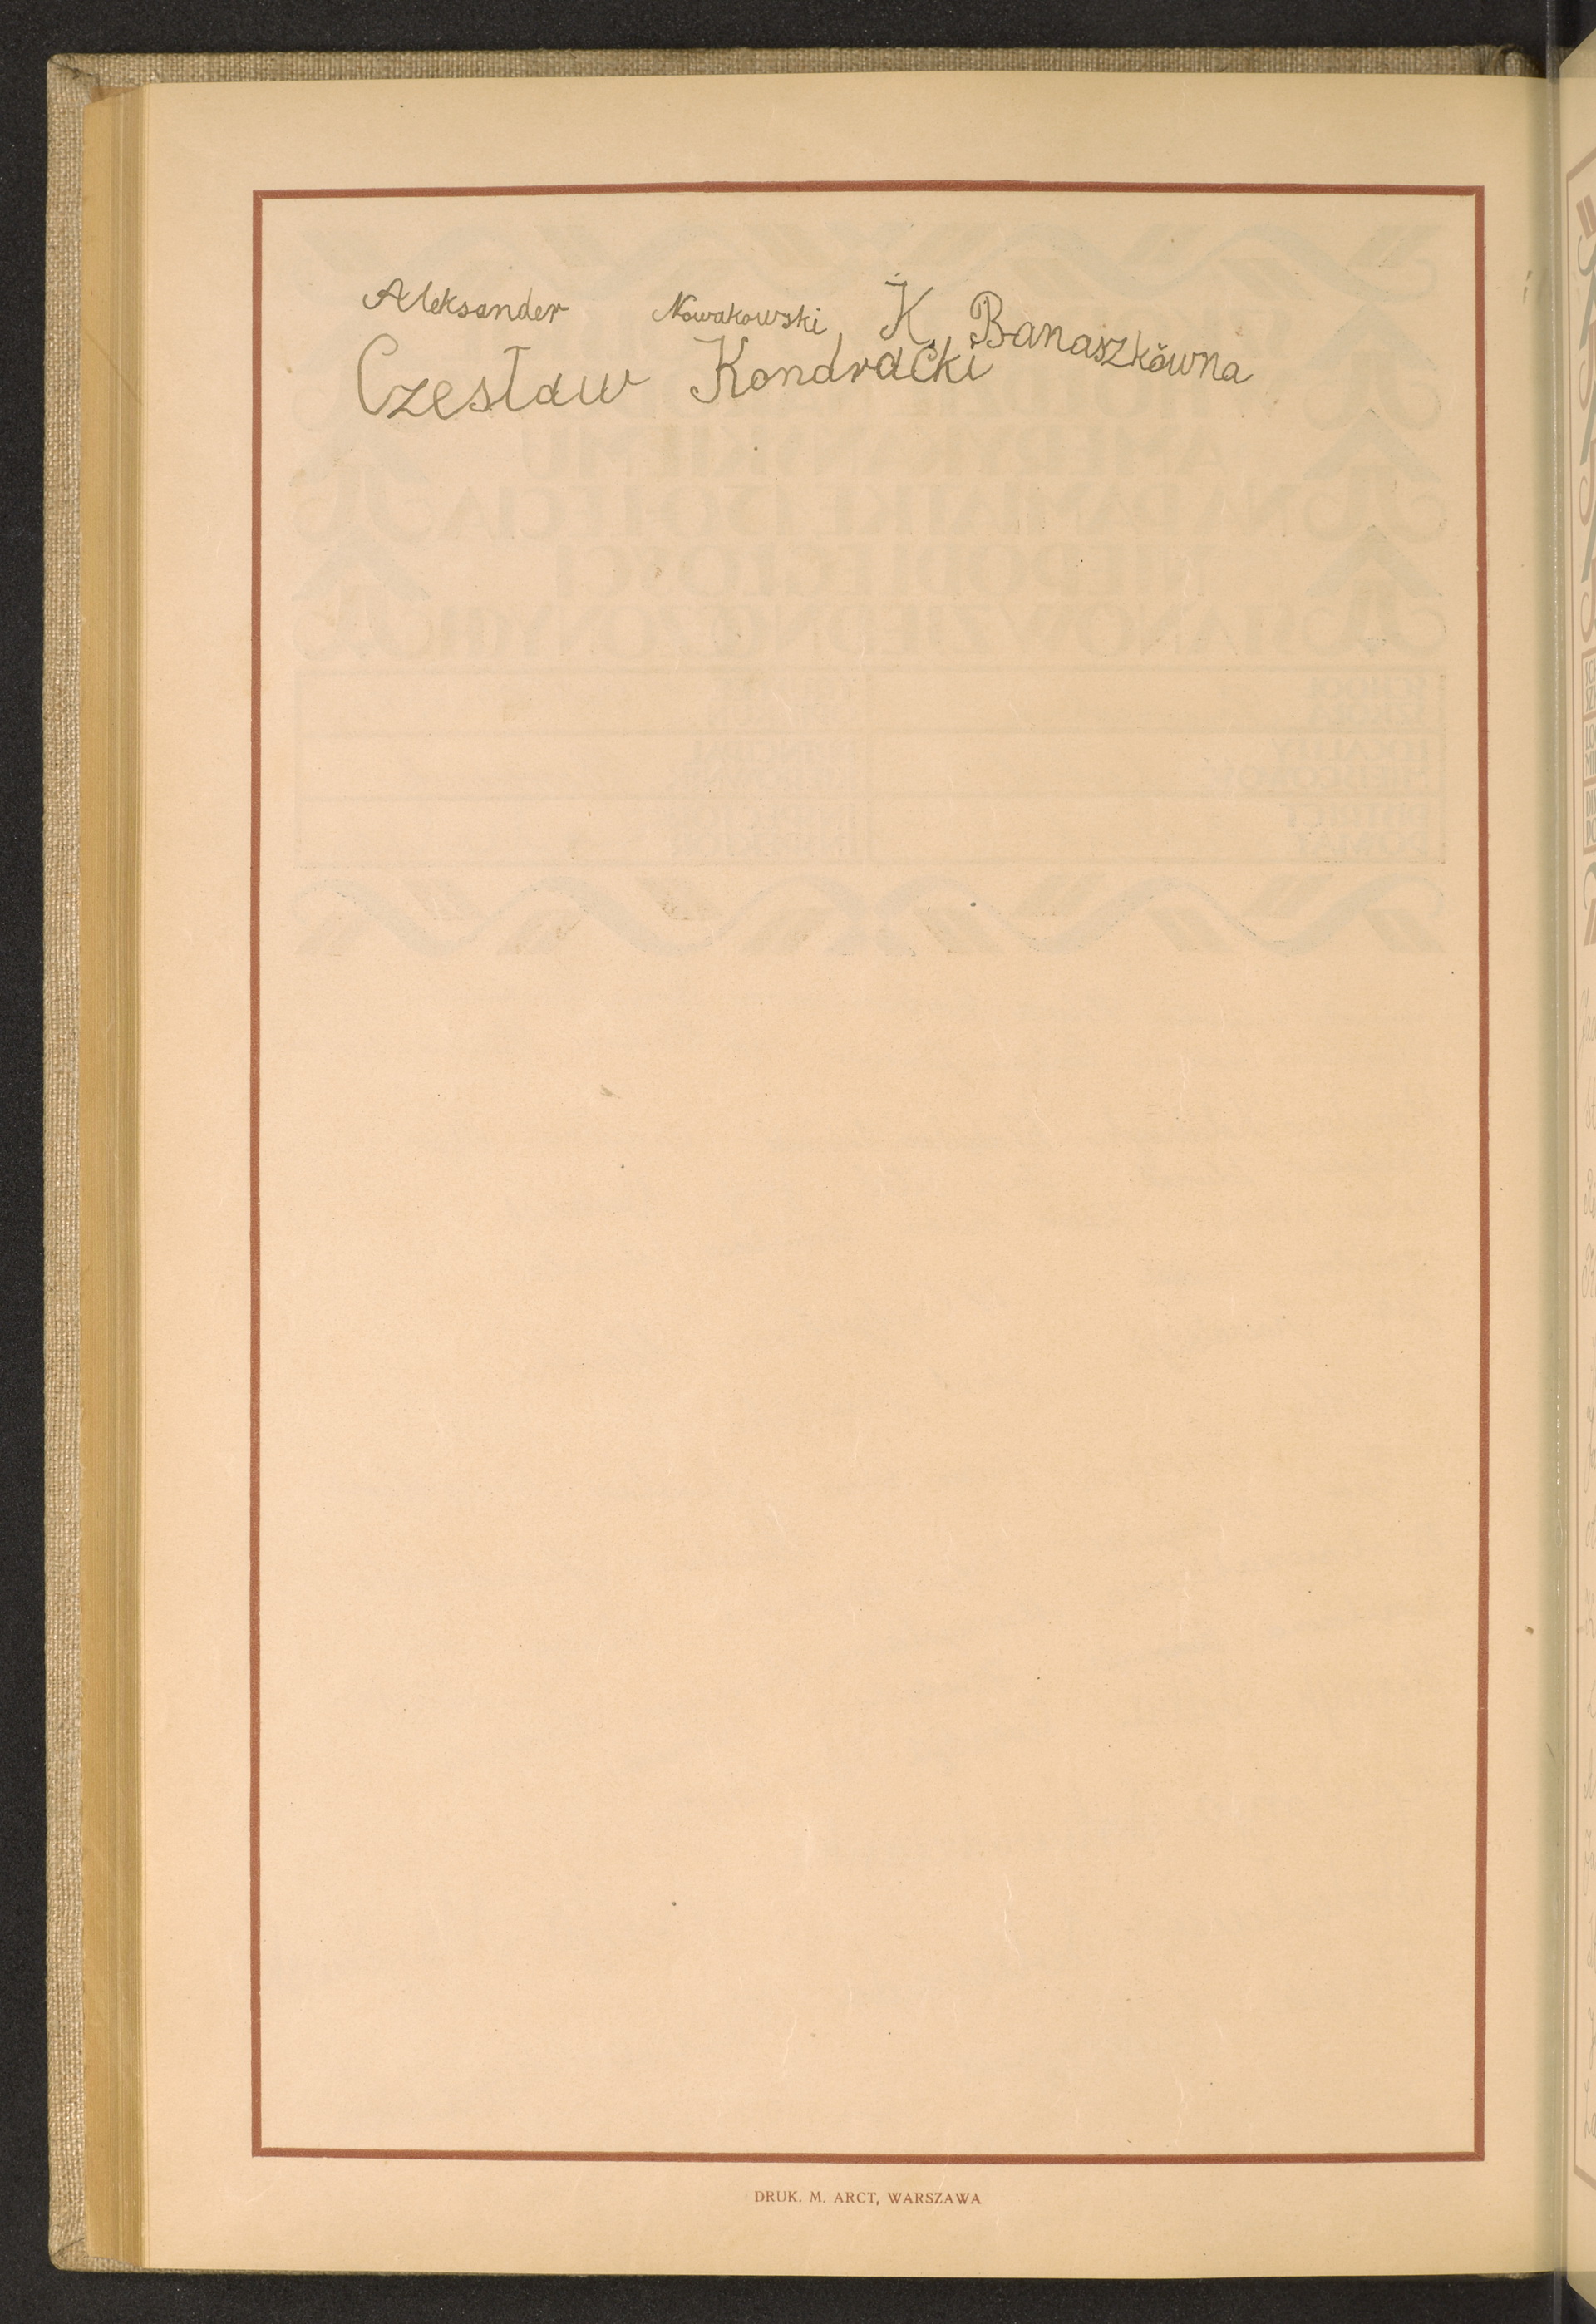 Aleksander Nowakowski K. Banaszkówna
Czesław Kondracki
DRUK. M. ARCT, WARSZAWA